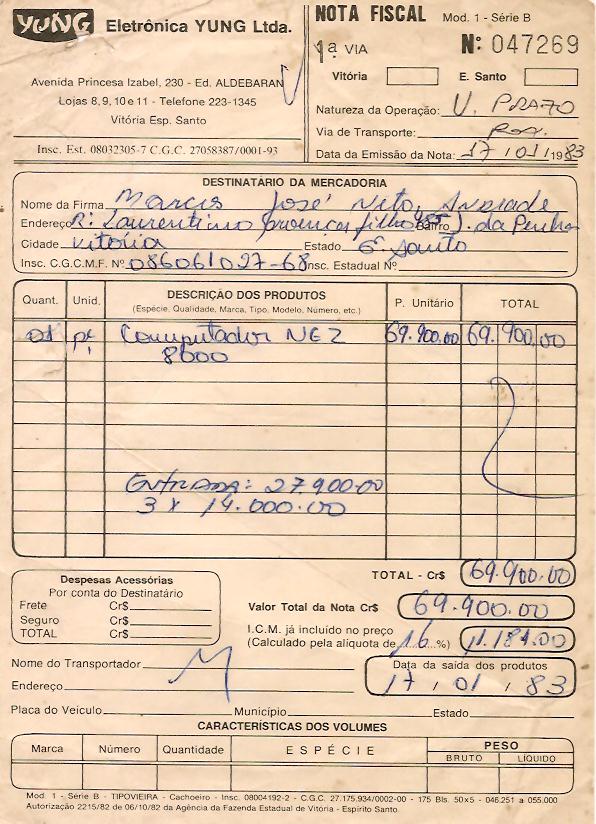 YUNG Eletrônica YUNG Ltda.
Avenida Princesa Izabel, 230 - Ed. ALDEBARAN
Lojas 8, 9, 10 e 11 - Telefone 223-1345
Vitória Esp. Santo
Insc. Est. 08032305-7 C.G.C. 27058387/0001-93
NOTA FISCAL Mod. 1 - Série B
1ª VIA Nº 047269
Vitória E. Santo
Natureza da Operação: V. PRAZO
Via de Transporte: Rod.
Data da Emissão da Nota: 17/01/1983
DESTINATÁRIO DA MERCADORIA
Nome da Firma Marcis José Neto Andrade
Endereço R: Laurentino proença filho 485 Bairro J. da Penha
Cidade Vitória Estado E. Santo
Insc. C.G.C.M.F. Nº 086061027-68 Insc. Estadual Nº
Quant. Unid. DESCRIÇÃO DOS PRODUTOS P. Unitário TOTAL
(Espécie, Qualidade, Marca, Tipo, Modelo, Número, etc.)
01 pç Computador NEZ 69.900.00 69.900.00
8000
ENTRADA: 27.900.00
3 x 14.000.00
TOTAL - Cr$ 69.900.00
Despesas Acessórias
Por conta do Destinatário
Frete Cr$
Seguro Cr$
TOTAL Cr$
Valor Total da Nota Cr$ 69.900.00
I.C.M. já incluído no preço
(Calculado pela alíquota de 16 %) 11.184.00
Nome do Transportador
Endereço
Data da saída dos produtos
17 / 01 / 83
Placa do Veículo Município Estado
CARACTERÍSTICAS DOS VOLUMES
Marca Número Quantidade ESPÉCIE PESO
BRUTO LÍQUIDO
Mod. 1 - Série B - TIPOVIEIRA - Cachoeiro - Insc. 08004192-2 - C.G.C. 27.175.934/0002-00 - 175 Bls. 50x5 - 046.251 a 055.000
Autorização 2215/82 de 06/10/82 da Agência da Fazenda Estadual de Vitória - Espírito Santo.